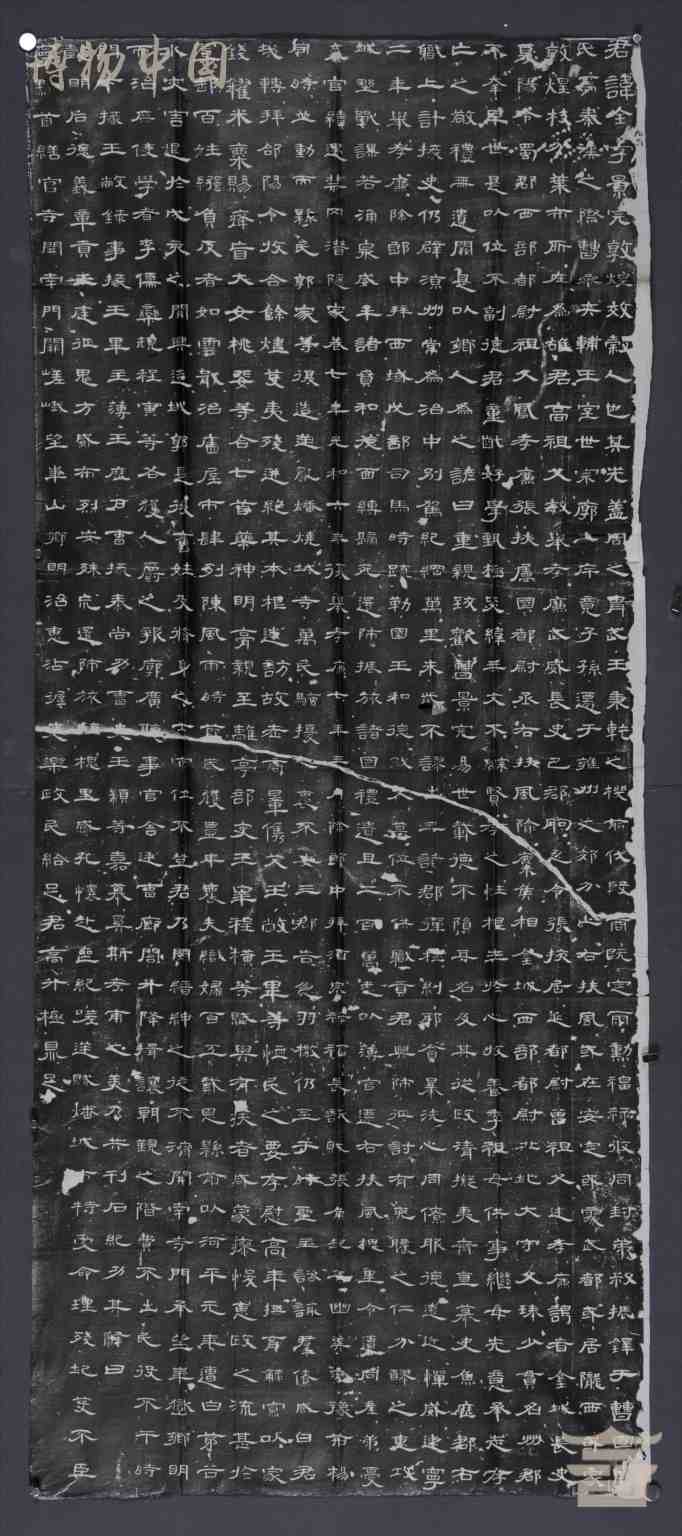 君諱全字景完敦煌效穀人也其先蓋周之胄武王秉乾之機翦伐殷商既定爾勳福祿攸同封弟叔振鐸于曹國
氏焉秦漢之際曹參夾輔王室世宗廓土斥竟子孫遷于雍州之郊分止右扶風或在安定或處武都或居隴西或家
敦煌枝分葉布所在為雄君高祖父敏舉孝廉武威長史巴郡朐忍令張掖居延都尉曾祖父述孝廉謁者金城長史
夏陽令蜀郡西部都尉祖父鳳孝廉張掖屬國都尉丞右扶風隃麋侯相金城西部都尉北地大守父琫少貫名州郡
不幸早世是以位不副德君童齔好學甄極毖緯無文不綜賢孝之性根生於心收養季祖母供事繼母先意承志存
亡之敬禮無遺闕是以鄉人為之諺曰重親致歡曹景完易世載德不隕其名及其從政清擬夷齊直慕史魚歷郡右
職上計掾史仍辟涼州常為治中別駕紀綱萬里朱紫不謬出典諸郡彈枉糾邪貪暴洗心同僚服德遠近憚威建寧
二年舉孝廉除郎中拜西域戊部司馬時疏勒國王和德弒父篡位不供職貢君興師征討有兗膿之仁分醪之惠攻
城野戰謀若涌泉威牟諸賁和德面縛歸死還師振旅諸國禮遺且二百萬悉以薄官遷右扶風槐里令遭同產弟憂
棄官續遇禁冈潛隱家巷七年光和六年復舉孝廉七年三月除郎中拜酒泉祿福長訞賊張角起兵幽冀兗豫荊楊
同時並動而縣民郭家等復造逆亂燔燒城寺萬民騷擾人裹不安三郡告急羽檄仍至于時聖主諮諏群僚咸曰君
哉轉拜郃陽令收合餘燼芟夷殘迸絕其本根遂訪故老商量儁艾王敞王畢等恤民之要存慰高年撫育鰥寡以家
錢糴米粟賜癃盲大女桃婓等合七首藥神明膏親至離亭部吏王皐程橫等賦與有疾者咸蒙瘳悛惠政之流甚於
置郵百姓繈負反者如雲戢治廧屋市肆列陳風雨時節歲獲豐年農夫織婦百工戴恩縣前以河平元年遭白茅谷
水災害退於戊亥之間興造城郭是後舊姓及脩身之士官位不登君乃閔縉紳之徒不濟開南寺門承望華嶽鄉明
而治庶使學者李儒欒規程寅等各獲人爵之報廓廣聽事官舍廷曹廊閤升降揖讓朝覲之階費不出民役不干時
門下掾王敞錄事掾王畢主薄王歷戶曹掾秦尚功曹史王顓等嘉慕奚斯考甫之美乃共刊石紀功其辭曰
明后德義章貢王廷征鬼方威布烈安殊荒還師旅臨槐里感孔懷赴喪紀嗟逆賊燔城市特受命理殘圮芟不臣
寧黔首繕官寺開南門闕嵯峨望華山鄉明治惠沾渥吏樂政民給足君高升極鼎足
博物中国